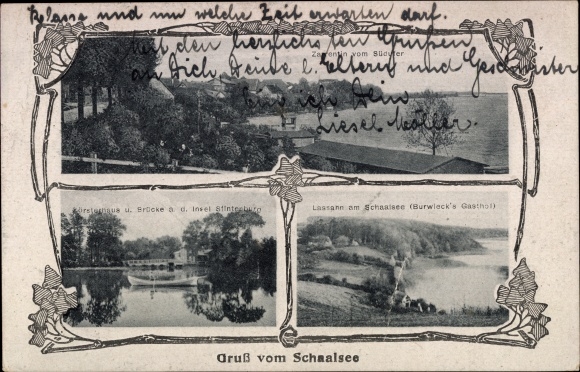 Klasse und um welche Zeit erwarten darf.
Mit den herzlichsten Grüßen
an Dich, Deine l. Eltern und Geschwister
bin ich Dein
Liesel Möller.
Zarrentin vom Südufer
Försterhaus u. Brücke a. d. Insel Stintenburg
Lassahn am Schaalsee (Burwieck's Gasthof)
Gruß vom Schaalsee